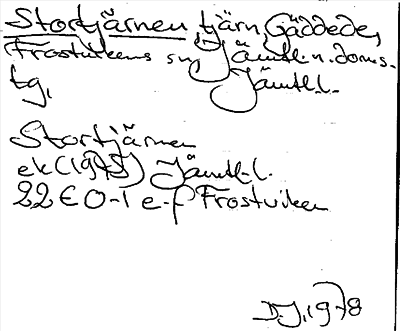 Stortjärnen tjärn, Gäddede,
Frostvikens sn Jämtl. n. doms.
tg, Jämtl. l.
Stortjärnen
ek (1975) Jämtl. l.
22E 0-1 e-f Frostviken
DJ, 1978